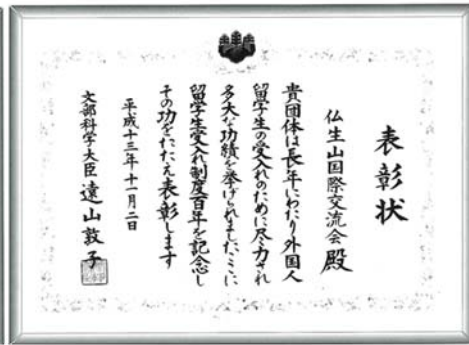 表彰状
仏生山国際交流会殿
貴団体は長年にわたり外国人
留学生の受入れのために尽力され
多大な功績を挙げられましたここに
留学生受入れ制度百年を記念し
その功をたたえ表彰します
平成十三年十一月二日
文部科学大臣 遠山敦子